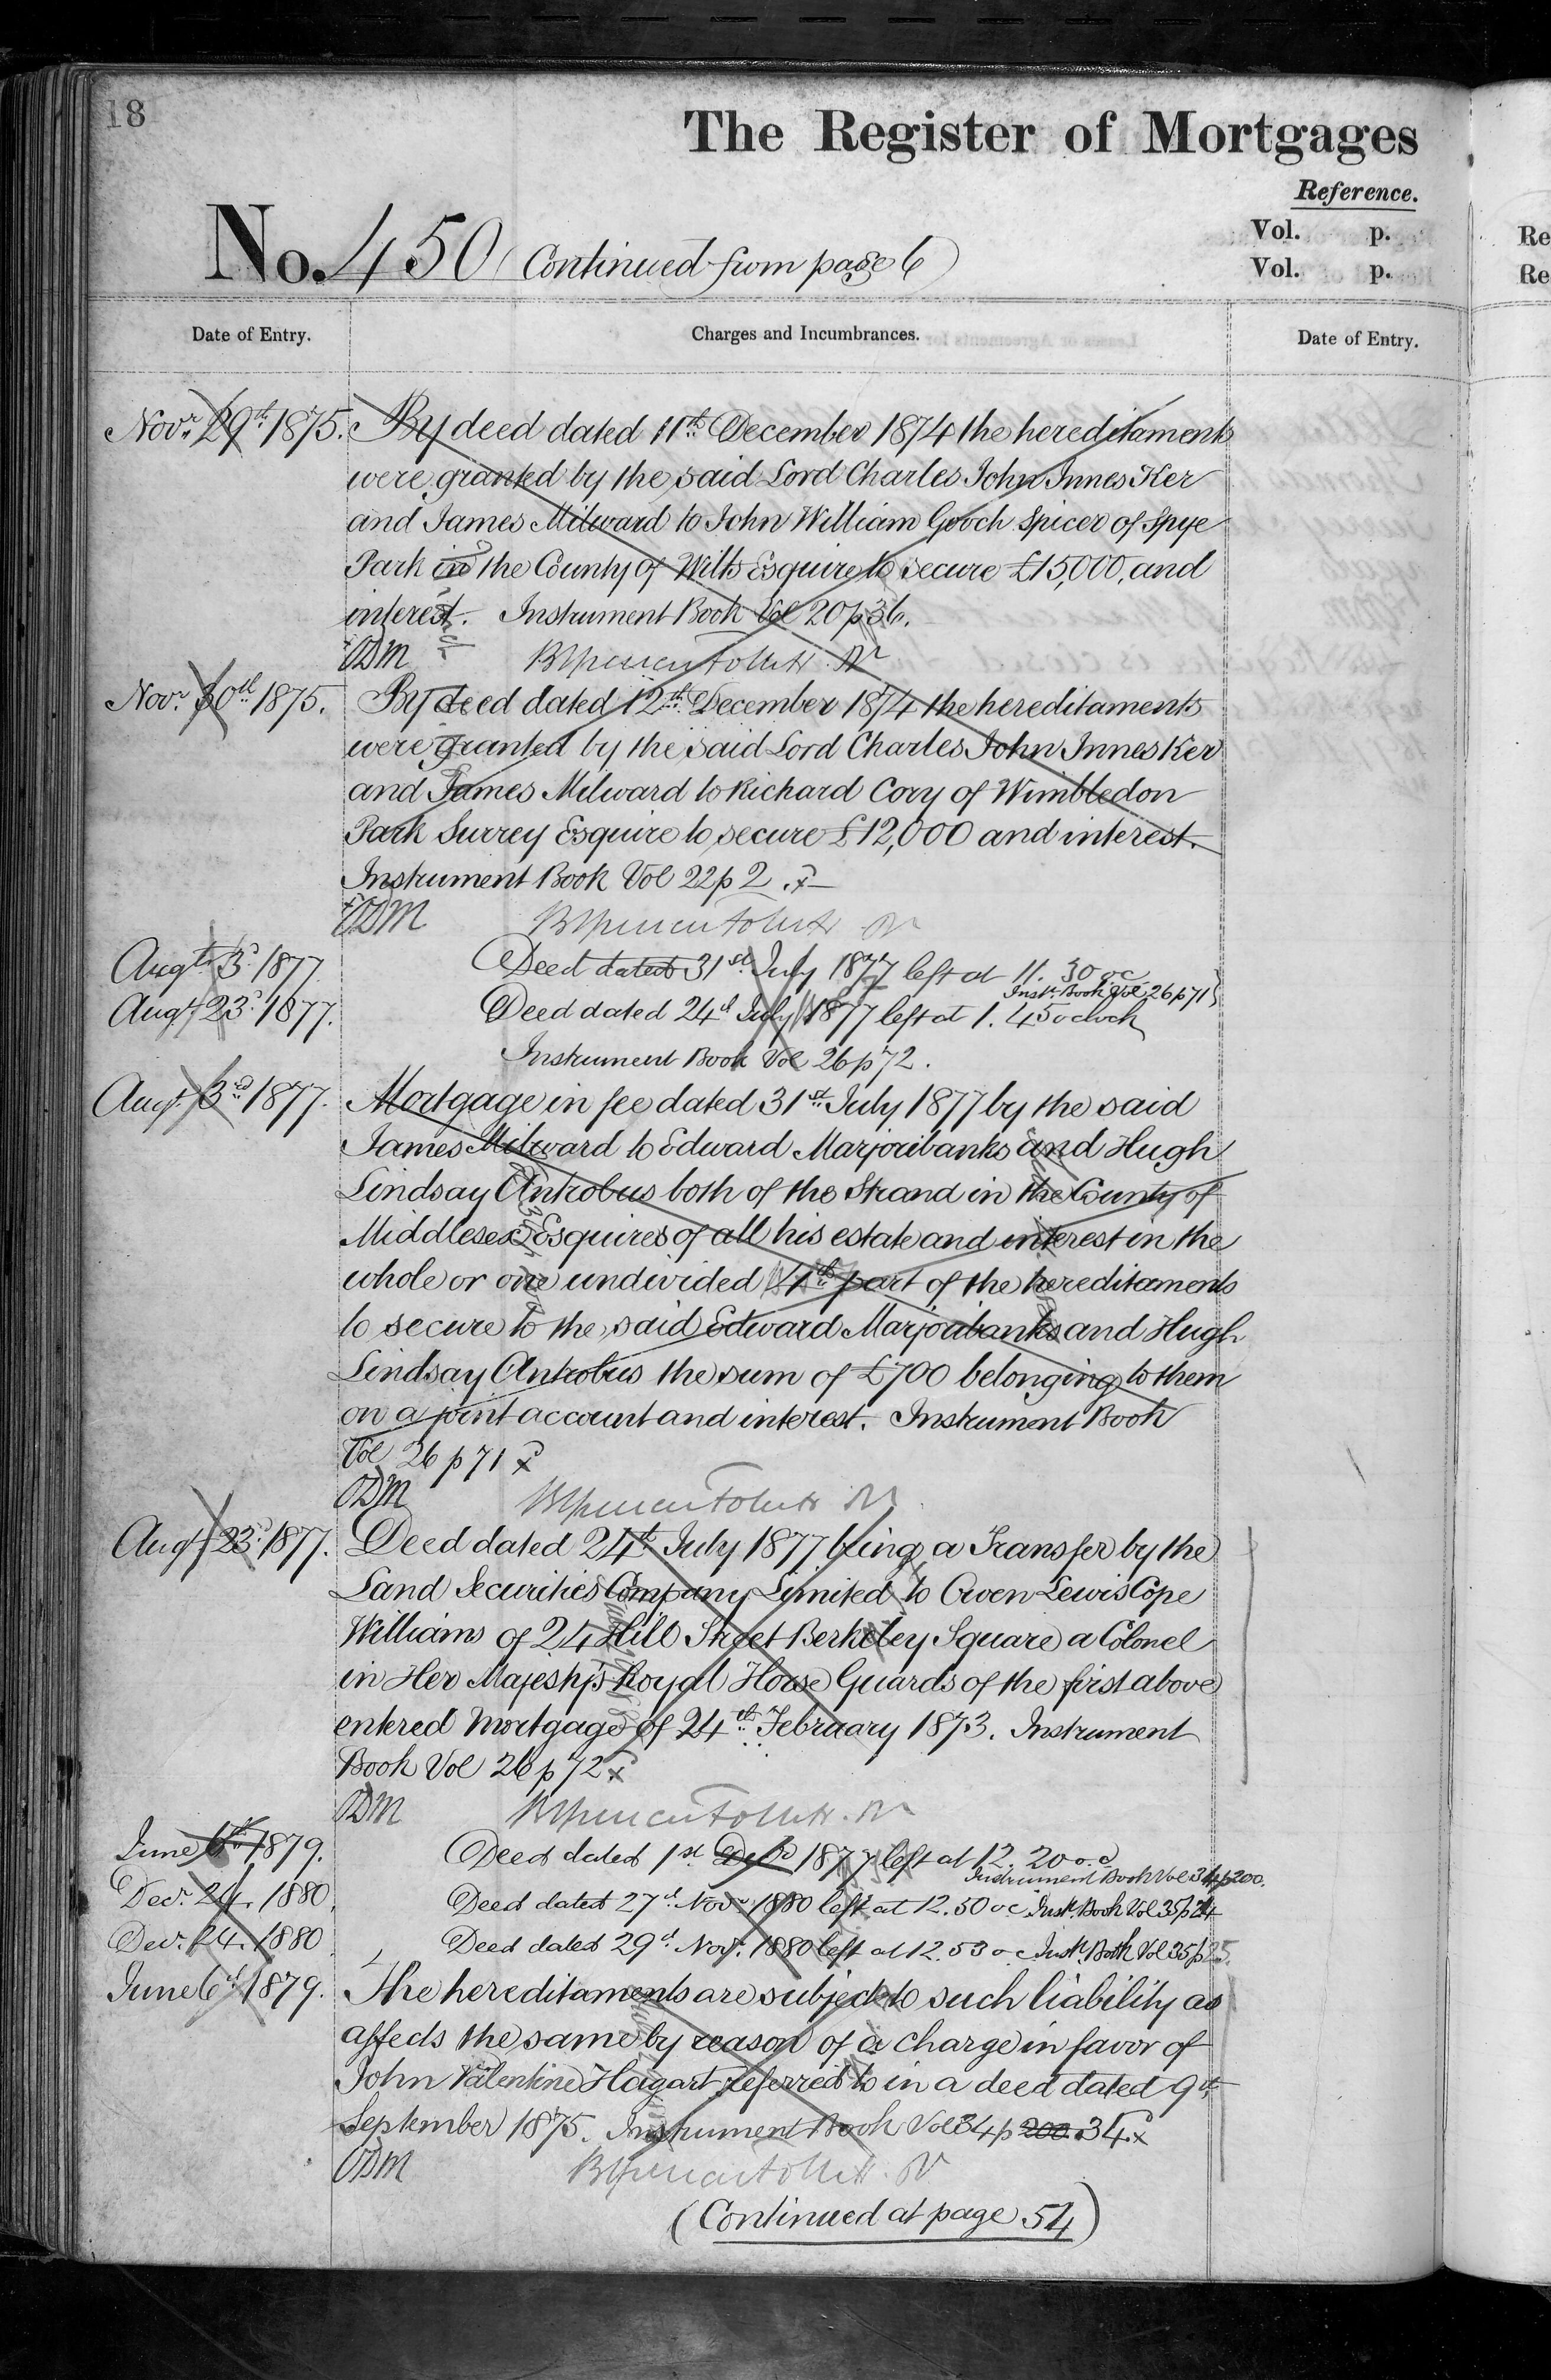 18
The Register of Mortgages
Reference.
Vol. p.
Vol. p.
No. 450 (Continued from page 6)
Date of Entry.
Charges and Incumbrances.
Date of Entry.
Re
Re
Novr. 29th 1875. By deed dated 11th December 1874 the hereditaments
were granted by the said Lord Charles John Innes Ker
and James Milward to John William Gooch Spicer of Spye
Park in the County of Wilts Esquire to secure £15,000, and
interest. Instrument Book Vol 20 p 36.
ODM
Novr. 30th 1875. By deed dated 12th December 1874 the hereditaments
were granted by the said Lord Charles John Innes Ker
and James Milward to Richard Cory of Wimbledon
Park Surrey Esquire to secure £12,000 and interest.
Instrument Book Vol 22 p 2.
ODM
Augt. 3d 1877. Deed dated 31st July 1877 left at 11.30 oc
Instt. Book Vol 26 p 71
Augt. 23d 1877. Deed dated 24th July 1877 left at 1.45 oclock
Instrument Book Vol 26 p 72.
Augt. 3rd 1877. Mortgage in fee dated 31st July 1877 by the said
James Milward to Edward Marjoribanks and Hugh
Lindsay Antrobus both of the Strand in the County of
Middlesex Esquires of all his estate and interest in the
whole or one undivided 4th part of the hereditaments
to secure to the said Edward Marjoribanks and Hugh
Lindsay Antrobus the sum of £700 belonging to them
on a joint account and interest. Instrument Book
Vol 26 p 71
ODM
Augt. 23d 1877. Deed dated 24th July 1877 being a Transfer by the
Land Securities Company Limited to Owen Lewis Cope
Williams of 24 Hill Street Berkeley Square a Colonel
in Her Majesty's Royal Horse Guards of the first above
entered Mortgage of 24th February 1873. Instrument
Book Vol 26 p 72
ODM
June 6th 1879. Deed dated 1st 1877 left at 12.20 o.c
Instrument Book Vol 34 p 200.
Decr. 24. 1880. Deed dated 27th Novr. 1880 left at 12.50 oc Inst. Book Vol 35 p 24
Decr. 24. 1880 Deed dated 29th Novr. 1880 left at 12.53 oc Inst. Book Vol 35 p 25.
June 6th 1879. The hereditaments are subject to such liability as
affects the same by reason of a charge in favor of
John Valentine Hagart referred to in a deed dated 9th
September 1875. Instrument Book Vol 34 p 200 34.
ODM
(Continued at page 54)